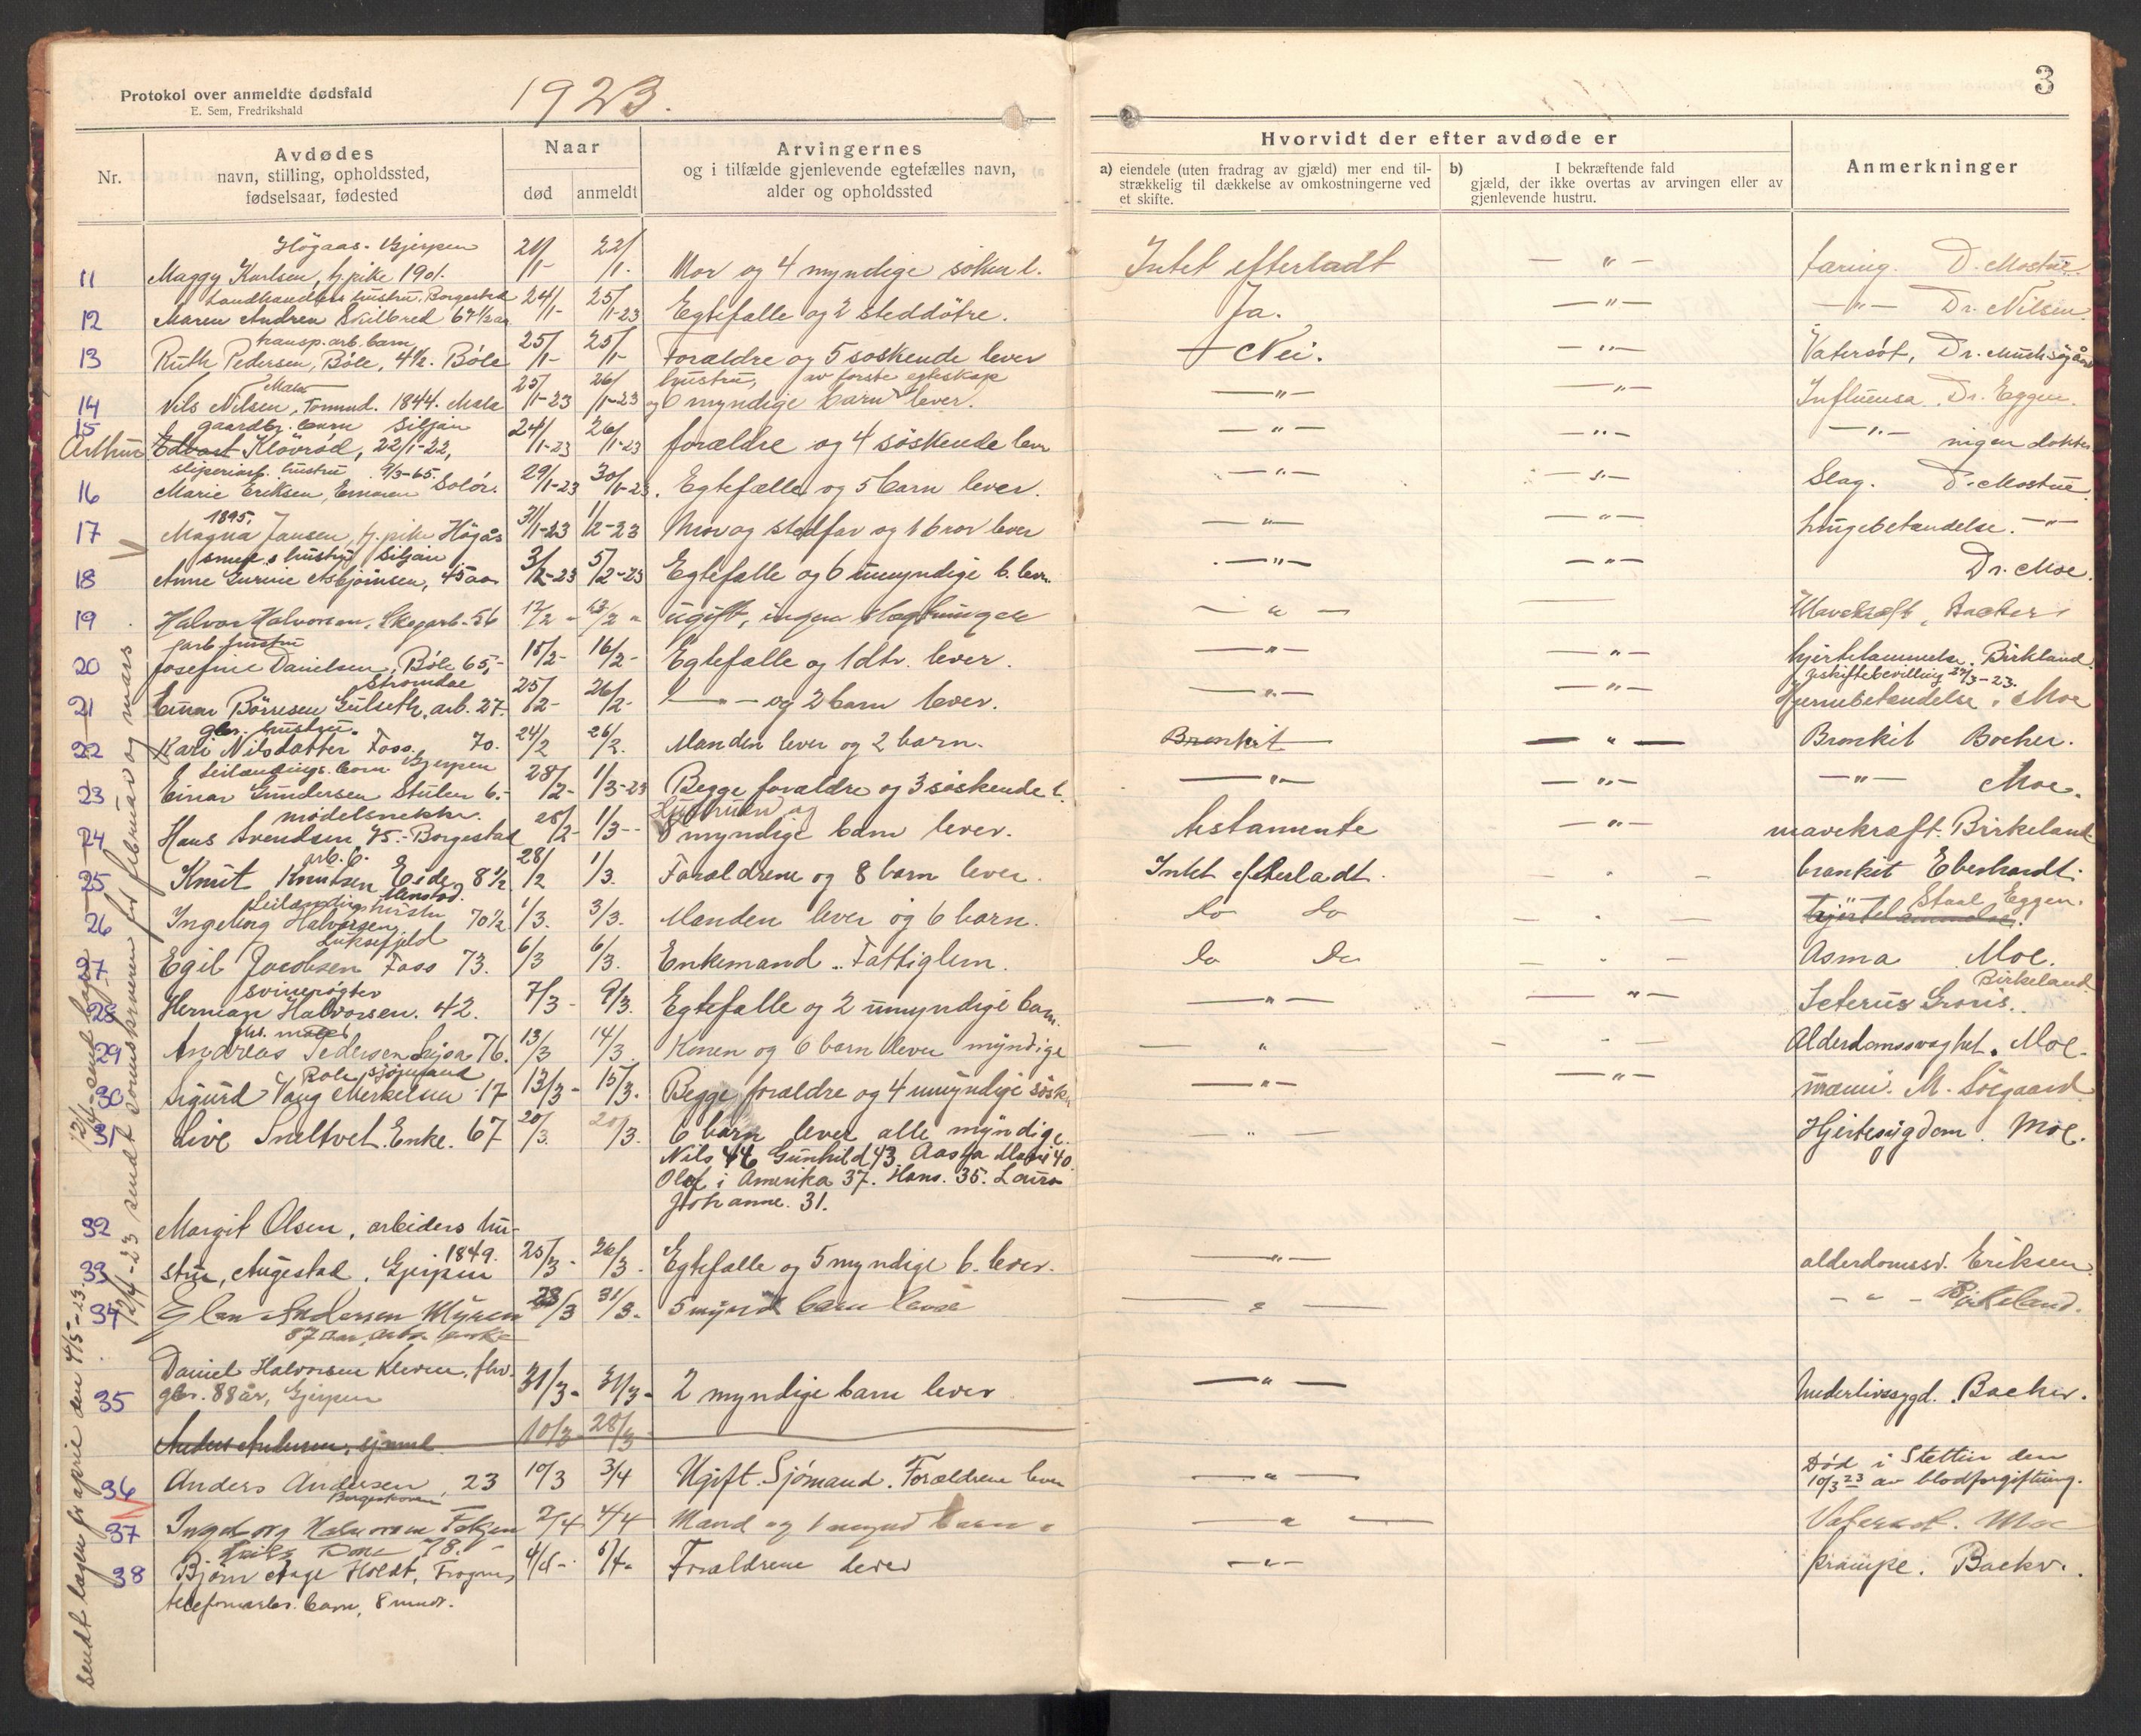 Protokol over anmeldte dødsfald
E. Sem, Fredrikshald
1923.
3
Nr.
Avdødes
navn, stilling, opholdssted,
fødselsaar, fødested
Naar
død
anmeldt
Arvingernes
og i tilfælde gjenlevende egtefælles navn,
alder og opholdssted
Hvorvidt der efter avdøde er
a) eiendele (uten fradrag av gjæld) mer end til-
strækkelig til dækkelse av omkostningerne ved
et skifte.
b) I bekræftende fald
gjæld, der ikke overtas av arvingen eller av
gjenlevende hustru.
Anmerkninger
Högaas. Gjerpen
11 Maggy Karlsen, tj. pike 1901. 21/1- 22/1. Mor og 4 myndige sösken l. Intet efterladt —"— tæring. D. Mostue.
Landhandlers hustru. Borgestad
12 Maren Andrea Skilbred 67 1/2 aar 24/1- 25/1-23 Egtefælle og 2 steddötre. Ja. —"— —"— Dr. Nilsen.
transp. arb. barn
13 Ruth Pedersen, Böle, 4 1/2. Böle 25/1- 25/1- Forældre og 5 søskende lever Nei. —"— Vatersót, Dr. Munk Søgård
hustru, av første egteskap
14 Nils Nilsen, Tømmd. 1844. Mæla 25/1-23 26/1-23 og 6 myndige barn lever. —"— —"— Influensa. Dr. Eggen.
gaardbr. barn Siljan
15 Arthur Edvart Klövröd, 22/1-22, 24/1-23 26/1-23 forældre og 4 söskende lever —"— —"— —"— ingen doktor
sliperiarb. hustru 9/3-65.
16 Marie Eriksen, Solör. 29/1-23 30/1-23. Egtefælle og 5 barn lever. —"— —"— Slag. D. Mostue
1895.
17 Magna Jansen, tj. pike Högås 31/1-23 1/2-23 Mor og stedfar og 1 bror lever —"— —"— Lungebetændelse. —"—
smeds hustru Siljan
18 Anne Gurine Asbjörnsen, 45 aar 3/2-23 5/2-23 Egtefælle og 6 umyndige b. lever. —"— —"— Dr. Moe.
19 Halvor Halvorsen, Skogarb. 56 12/2 - 13/2 " ugift, ingen slægtninger —"— — Mavekræft, Backer
arb. hustru
20 Josefine Danielsen, Böle 65,- 15/2- 16/2- Egtefælle og 1 dtr. lever. —"— —"— hjertelammelse. Birkland.
Strömdal
Uskiftebevilling 27/3-23.
21 Einar Börresen Gulseth, arb. 27. 25/2- 26/2- —"— og 2 barn lever. —"— —"— Hjernebetendelse. Moe
gbr. hustru.
22 Kari Nilsdatter Foss. 70. 24/2 26/2. Manden lever og 2 barn. Bronkit —"— Bronkit Bocher.
Leilændings. barn Gjerpen
23 Einar Gundersen Stulen 6.- 28/2- 1/3-23 Begge forældre og 3 söskende l. —"— —"— —"— Moe.
modelsnekker. Hustruen og
24 Hans Svendsen 75.- Borgestad 28/2- 1/3-- 8 myndige barn lever. testamente —"— mavekræft. Birkeland.
arb. b.
25 Knut Knutsen Eide 8 1/2 28/2 1/3. Forældrene og 8 barn lever. Intet efterladt. — " — bronkit Eberhardt.
Leilændings hustru Menstad.
26 Ingeborg Halvorsen. 70 1/2 1/3. 3/3. Manden lever og 6 barn. do do — " — Hjertelammelse. Staal Eggen.
Luksefjeld
27 Egil Jacobsen Foss 73. 6/3 6/3. Enkemand .. Fattiglem. do do — " — Asma Moe.
svinerögter
28 Herman Halvorsen. 42. 7/3 - 9/3. Egtefælle og 2 umyndige barn. —"— —"— Icterus Gravis. Birkeland.
29 Andreas Pedersen 76. 13/3 14/3. Konen og 6 barn lever myndige —"— — " — Alderdomssvaghet. Moe.
Böle sjömand
30 Sigurd Vaug Merkelsen 17 13/3- 15/3. Begge forældre og 4 umyndige söske —"— —"— uræmi. M. Söegaard
31 Live Sneltvet. Enke. 67 20/3. 20/3. 6 barn lever alle myndige. —"— Hjertesygdom. Moe.
Nils 44 Gunhild 43 Aasta Mari 40
Olaf i Amerika 37. Hans. 35. Laura
Johanne. 31.
32 Margit Olsen, arbeiders hu-
33 stru, Augestad, Gjerpen 1849. 25/3- 26/3. Egtefælle og 5 myndige b. lever. —"— alderdomssv. Eriksen.
34 Elen Andersen Myren 28/3 31/3. 5 mynd barn lever —"— —"— Birkeland.
87 aar, enke
Daniel Halvorsen Kleven, fhv.
35 gbr. 88 år, Gjerpen 31/3- 31/3- 2 myndige barn lever —"— Underlivssygd. Backer.
Anders Andersen, sjömd. 10/3 28/3
36 Anders Andersen, 23 10/3 3/4 Ugift. Sjömand. Forældrene lever —"— Död i Stettin den
10/3 23 av blodforgiftning.
37 Ingeborg Halvorsen 2/4 4/4 Mand og 1 mynd barn. —"— Vatersot. Moe
78.
38 Björn Aage Holdt, Frogner 4/4- 6/4- Forældrene lever —"— krampe. Backer.
telefonarb. barn, 8 mndr.
12/4-23 sendt sorenskriveren for februar og mars
sendt lagen for april den 4/5-23.